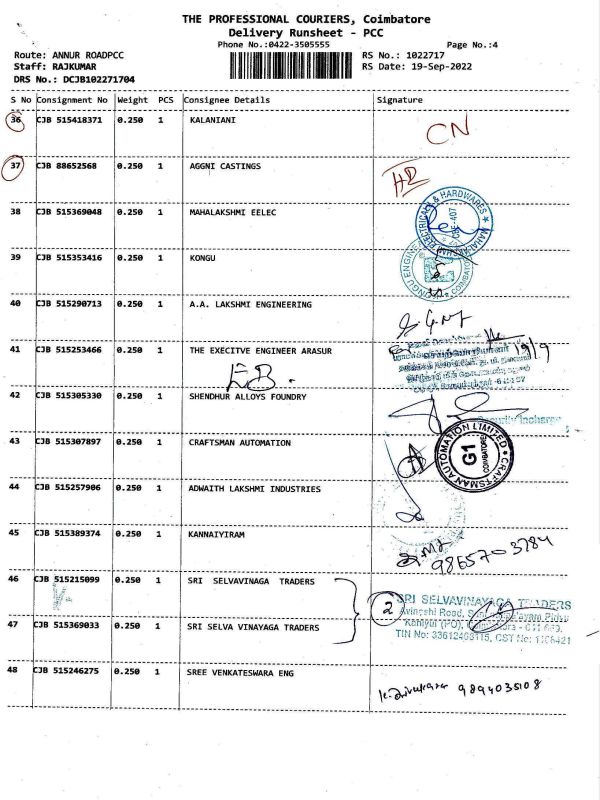 THE PROFESSIONAL COURIERS, Coimbatore
Delivery Runsheet - PCC
Phone No.:0422-3505555 Page No.:4
Route: ANNUR ROADPCC RS No.: 1022717
Staff: RAJKUMAR RS Date: 19-Sep-2022
DRS No.: DCJB102271704
S No Consignment No Weight PCS Consignee Details Signature
36 CJB 515418371 0.250 1 KALANIANI CN
37 CJB 88652568 0.250 1 AGGNI CASTINGS
38 CJB 515369048 0.250 1 MAHALAKSHMI EELEC
MAHALAKSHMI ELECTRICALS & HARDWARES
CBE-407
39 CJB 515353416 0.250 1 KONGU
KONGU ENGINEE
COIMBATO
40 CJB 515290713 0.250 1 A.A. LAKSHMI ENGINEERING
41 CJB 515253466 0.250 1 THE EXECITVE ENGINEER ARASUR
19/9
EB.
42 CJB 515305330 0.250 1 SHENDHUR ALLOYS FOUNDRY
Security Incharge
43 CJB 515307897 0.250 1 CRAFTSMAN AUTOMATION
CRAFTSMAN AUTOMATION LIMITED
G1
COIMBATORE
44 CJB 515257906 0.250 1 ADWAITH LAKSHMI INDUSTRIES
45 CJB 515389374 0.250 1 KANNAIYIRAM
9865703784
46 CJB 515215099 0.250 1 SRI SELVAVINAGA TRADERS
2
SRI SELVAVINAYAGA TRADERS
Avinashi Road,
Kaniyur (PO),
47 CJB 515369033 0.250 1 SRI SELVA VINAYAGA TRADERS
TIN No: CST No:
48 CJB 515246275 0.250 1 SREE VENKATESWARA ENG
9894035108